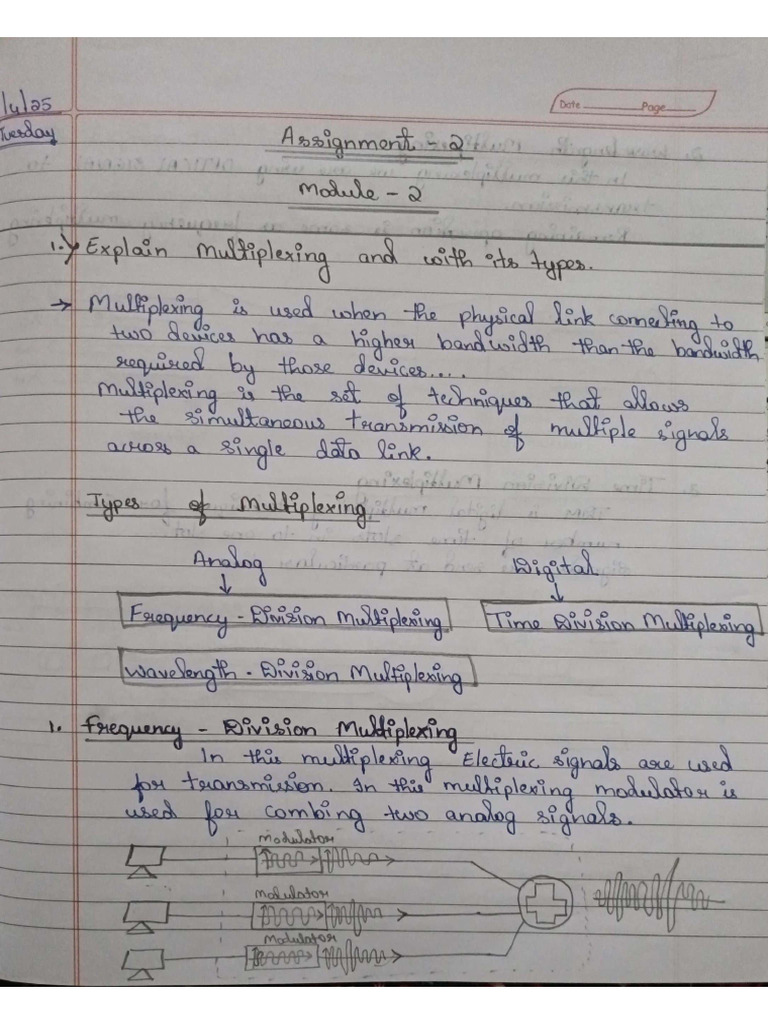 /4/25
Tuesday
Date Page
Assignment - 2
Module - 2
1.) Explain multiplexing and with its types.
→ Multiplexing is used when the physical link connecting to
two devices has a higher bandwidth than the bandwidth
required by those devices....
Multiplexing is the set of techniques that allows
the simultaneous transmission of multiple signals
across a single data link.
Types of Multiplexing
Analog Digital
↓ ↓
Frequency - Division Multiplexing Time Division Multiplexing
Wavelength - Division Multiplexing
1. Frequency - Division Multiplexing
In this multiplexing Electric signals are used
for transmission. In this multiplexing modulator is
used for combing two analog signals.
modulator
modulator
modulator